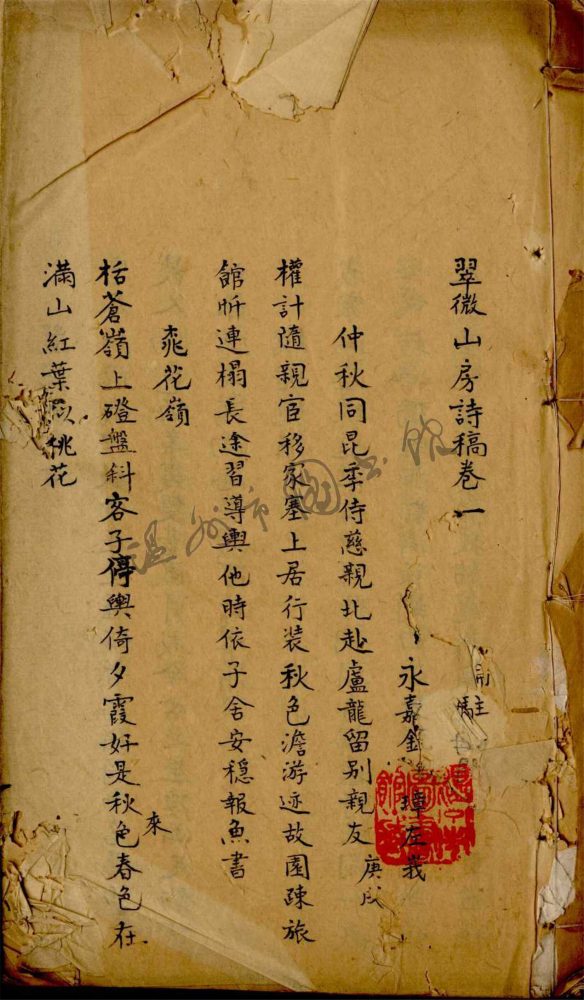 翠微山房詩稿卷一
永嘉 璋左峩
仲秋同昆季侍慈親北赴盧龍留別親友 庚戌
權計隨親宦移家塞上居行装秋色澹游迹故園踈旅
館昕連榻長途習導輿他時依子舍安穩報魚書
桃花嶺
栝蒼嶺上磴盤斜客子停輿倚夕霞好是秋色春色在
來
滿山紅葉 桃花
温州市图书馆